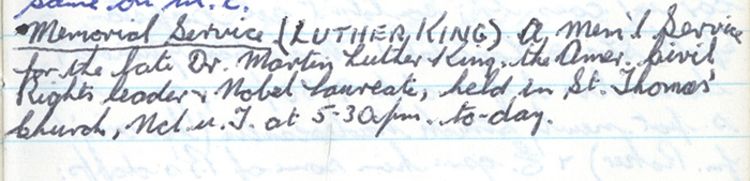 same on M.C.
Memorial Service (LUTHER KING) A mem'l Service
for the late Dr. Martin Luther King, the Amer. Civil
Rights leader & Nobel Laureate, held in St. Thomas'
Church, Ncl. u. T. at 5-30 pm. to-day.